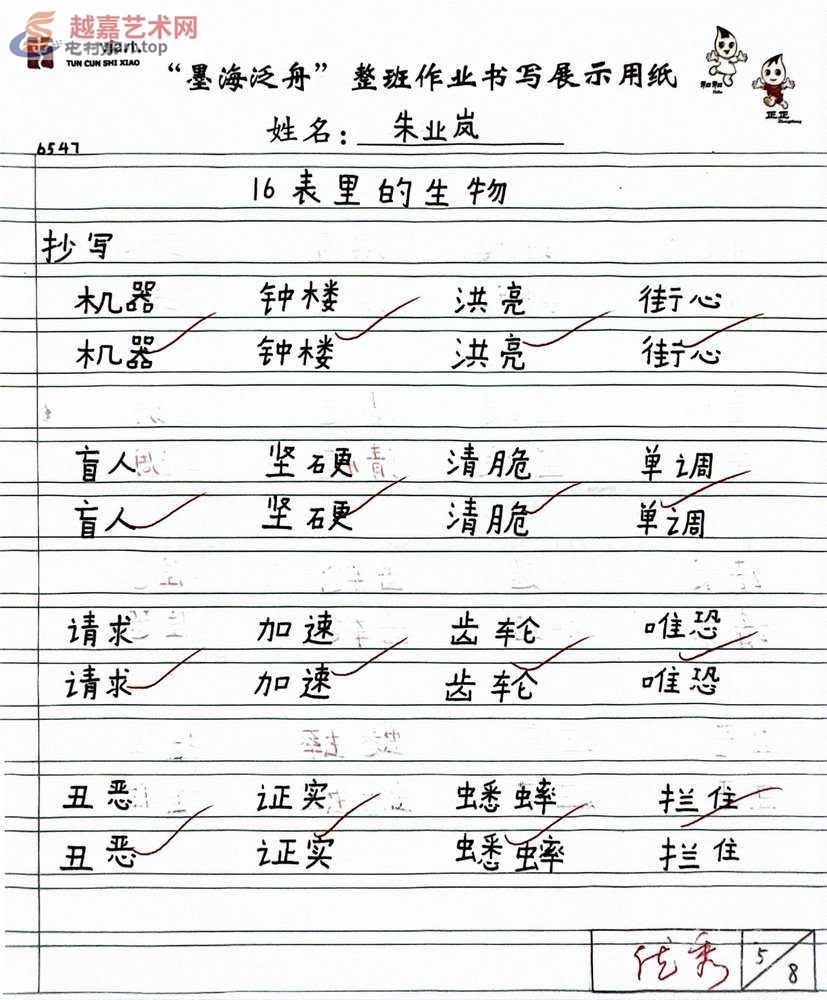 越嘉艺术网
yjart.top
TUN CUN SHI XIAO
“墨海泛舟”整班作业书写展示用纸
和和
正正
姓名：朱业岚
6547
16表里的生物
抄写
机器 钟楼 洪亮 街心
机器 钟楼 洪亮 街心
盲人 坚硬 清脆 单调
盲人 坚硬 清脆 单调
请求 加速 齿轮 唯恐
请求 加速 齿轮 唯恐
丑恶 证实 蟋蟀 拦住
丑恶 证实 蟋蟀 拦住
优秀 5/8